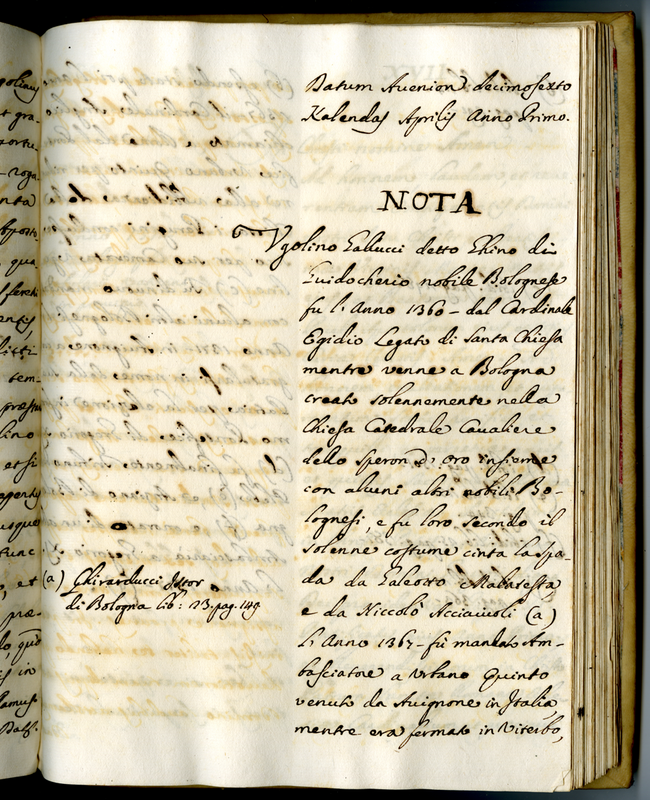 Datum Avenion decimosexto
Kalendas Aprilis Anno Primo.
NOTA
Vgolino Gallucci detto Ghino di
Guidocherio nobile Bolognese
fu l'Anno 1360 - dal Cardinale
Egidio Legato di Santa Chiesa
mentre venne a Bologna
creato solennemente nella
Chiesa Catedrale Cavaliere
dello Speron d'oro insieme
con alcuni altri nobili Bo-
lognesi, e fu loro secondo il
solenne costume cinta la spa-
da da Galeotto Malatesta,
e da Niccolò Acciaiuoli (a)
l'Anno 1367 - fù mandato Am-
basciatore a Urbano Quinto
venuto da Avignone in Italia,
mentre era fermato in Viterbo,
(a) Ghirarducci Istor
di Bologna lib: 23. pag. 149
golinus
t gra-
- roga-
nta
Aposto-
qua
entis,
litti
tem-
præsen
lino
et si
agentis
usque
tunc
, et
præ-
lo, quod
is in
ramus.
Dat.